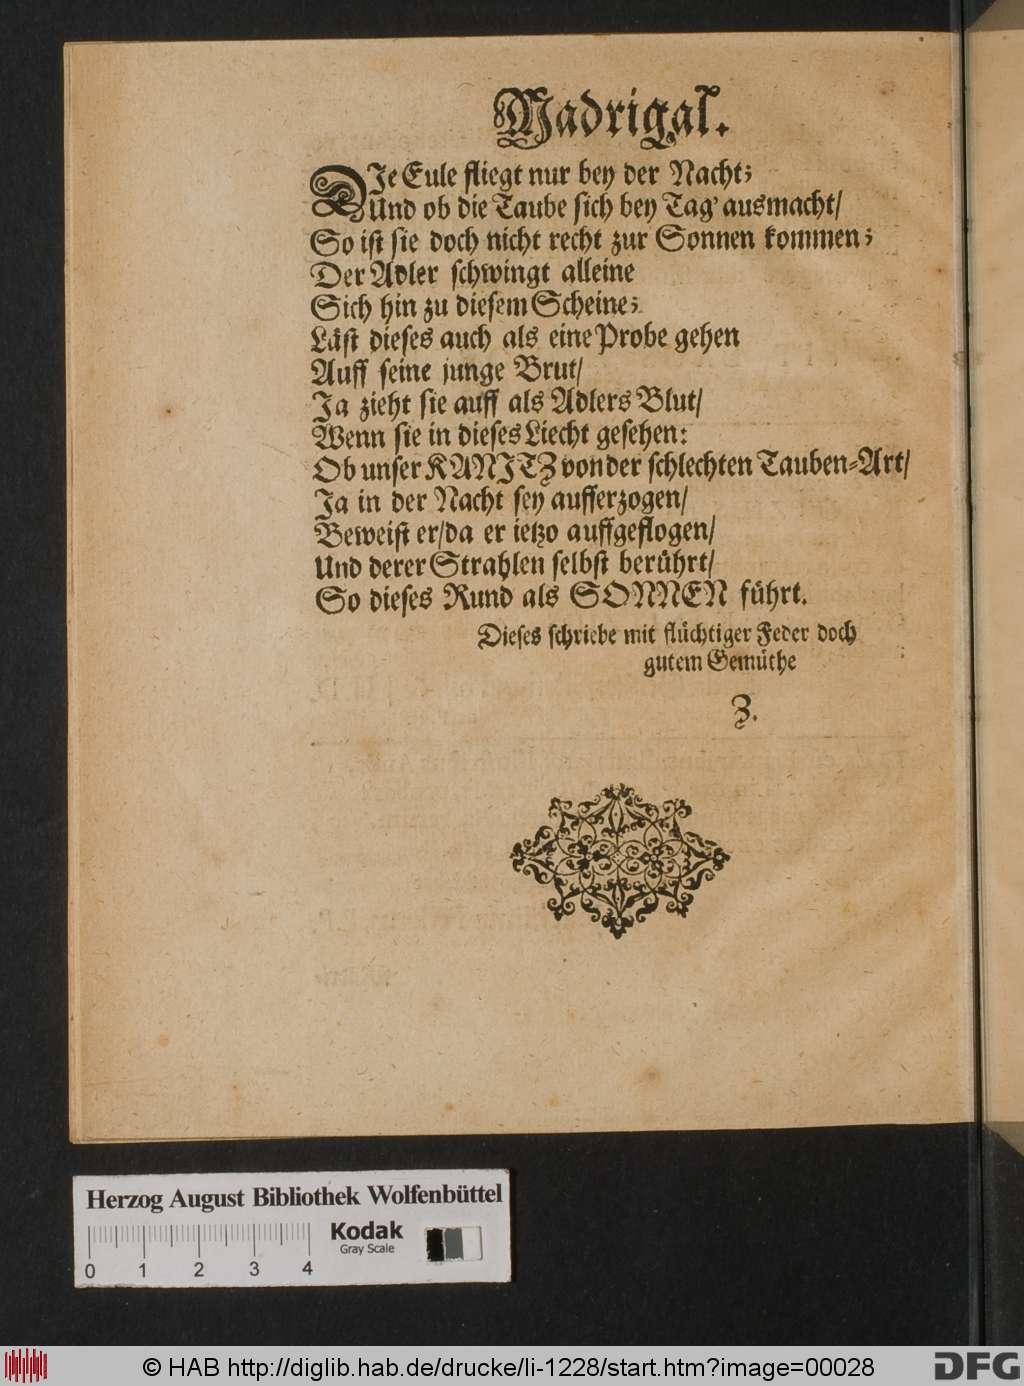 Madrigal.
DIe Eule fliegt nur bey der Nacht;
Und ob die Taube sich bey Tag' ausmacht/
So ist sie doch nicht recht zur Sonnen kommen;
Der Adler schwingt alleine
Sich hin zu diesem Scheine;
Läst dieses auch als eine Probe gehen
Auff seine junge Brut/
Ja zieht sie auff als Adlers Blut/
Wenn sie in dieses Liecht gesehen:
Ob unser KANITZ von der schlechten Tauben-Art/
Ja in der Nacht sey aufferzogen/
Beweist er/da er ietzo auffgeflogen/
Und derer Strahlen selbst berührt/
So dieses Rund als SONNEN führt.
Dieses schriebe mit flüchtiger Feder doch
gutem Gemüthe
Z.
Herzog August Bibliothek Wolfenbüttel
Kodak
Gray Scale
0 1 2 3 4
© HAB http://diglib.hab.de/drucke/li-1228/start.htm?image=00028
DFG